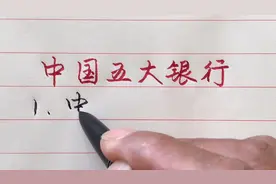 中国五大银行
1、中